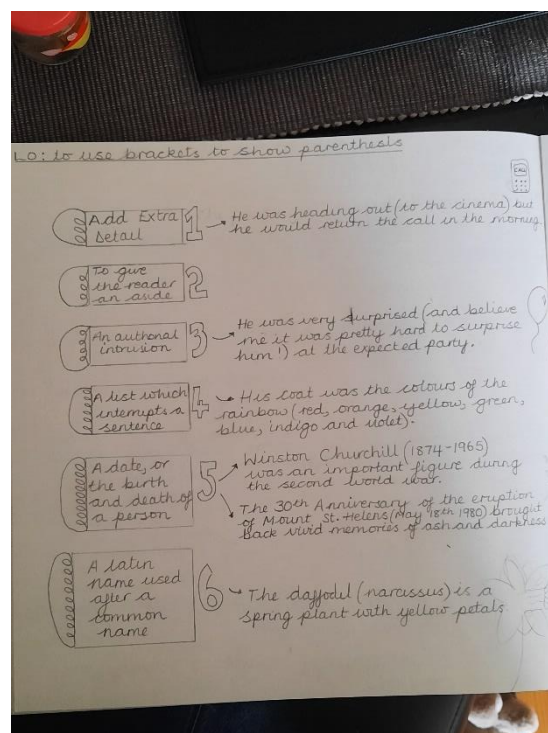 LO: to use brackets to show parenthesis
Add Extra
Detail
1
He was heading out (to the cinema) but
he would return the call in the morning.
To give
the reader
an aside
2
An authorial
intrusion
3
He was very surprised (and believe
me it was pretty hard to surprise
him!) at the expected party.
A list which
interrupts a
sentence
4
His coat was the colours of the
rainbow (red, orange, yellow, green,
blue, indigo and violet).
A date, or
the birth
and death of
a person
5
Winston Churchill (1874-1965)
was an important figure during
the second world war.
The 30th Anniversary of the eruption
of Mount St. Helens (May 18th 1980) brought
back vivid memories of ash and darkness
A latin
name used
after a
common
name
6
The daffodil (narcissus) is a
spring plant with yellow petals